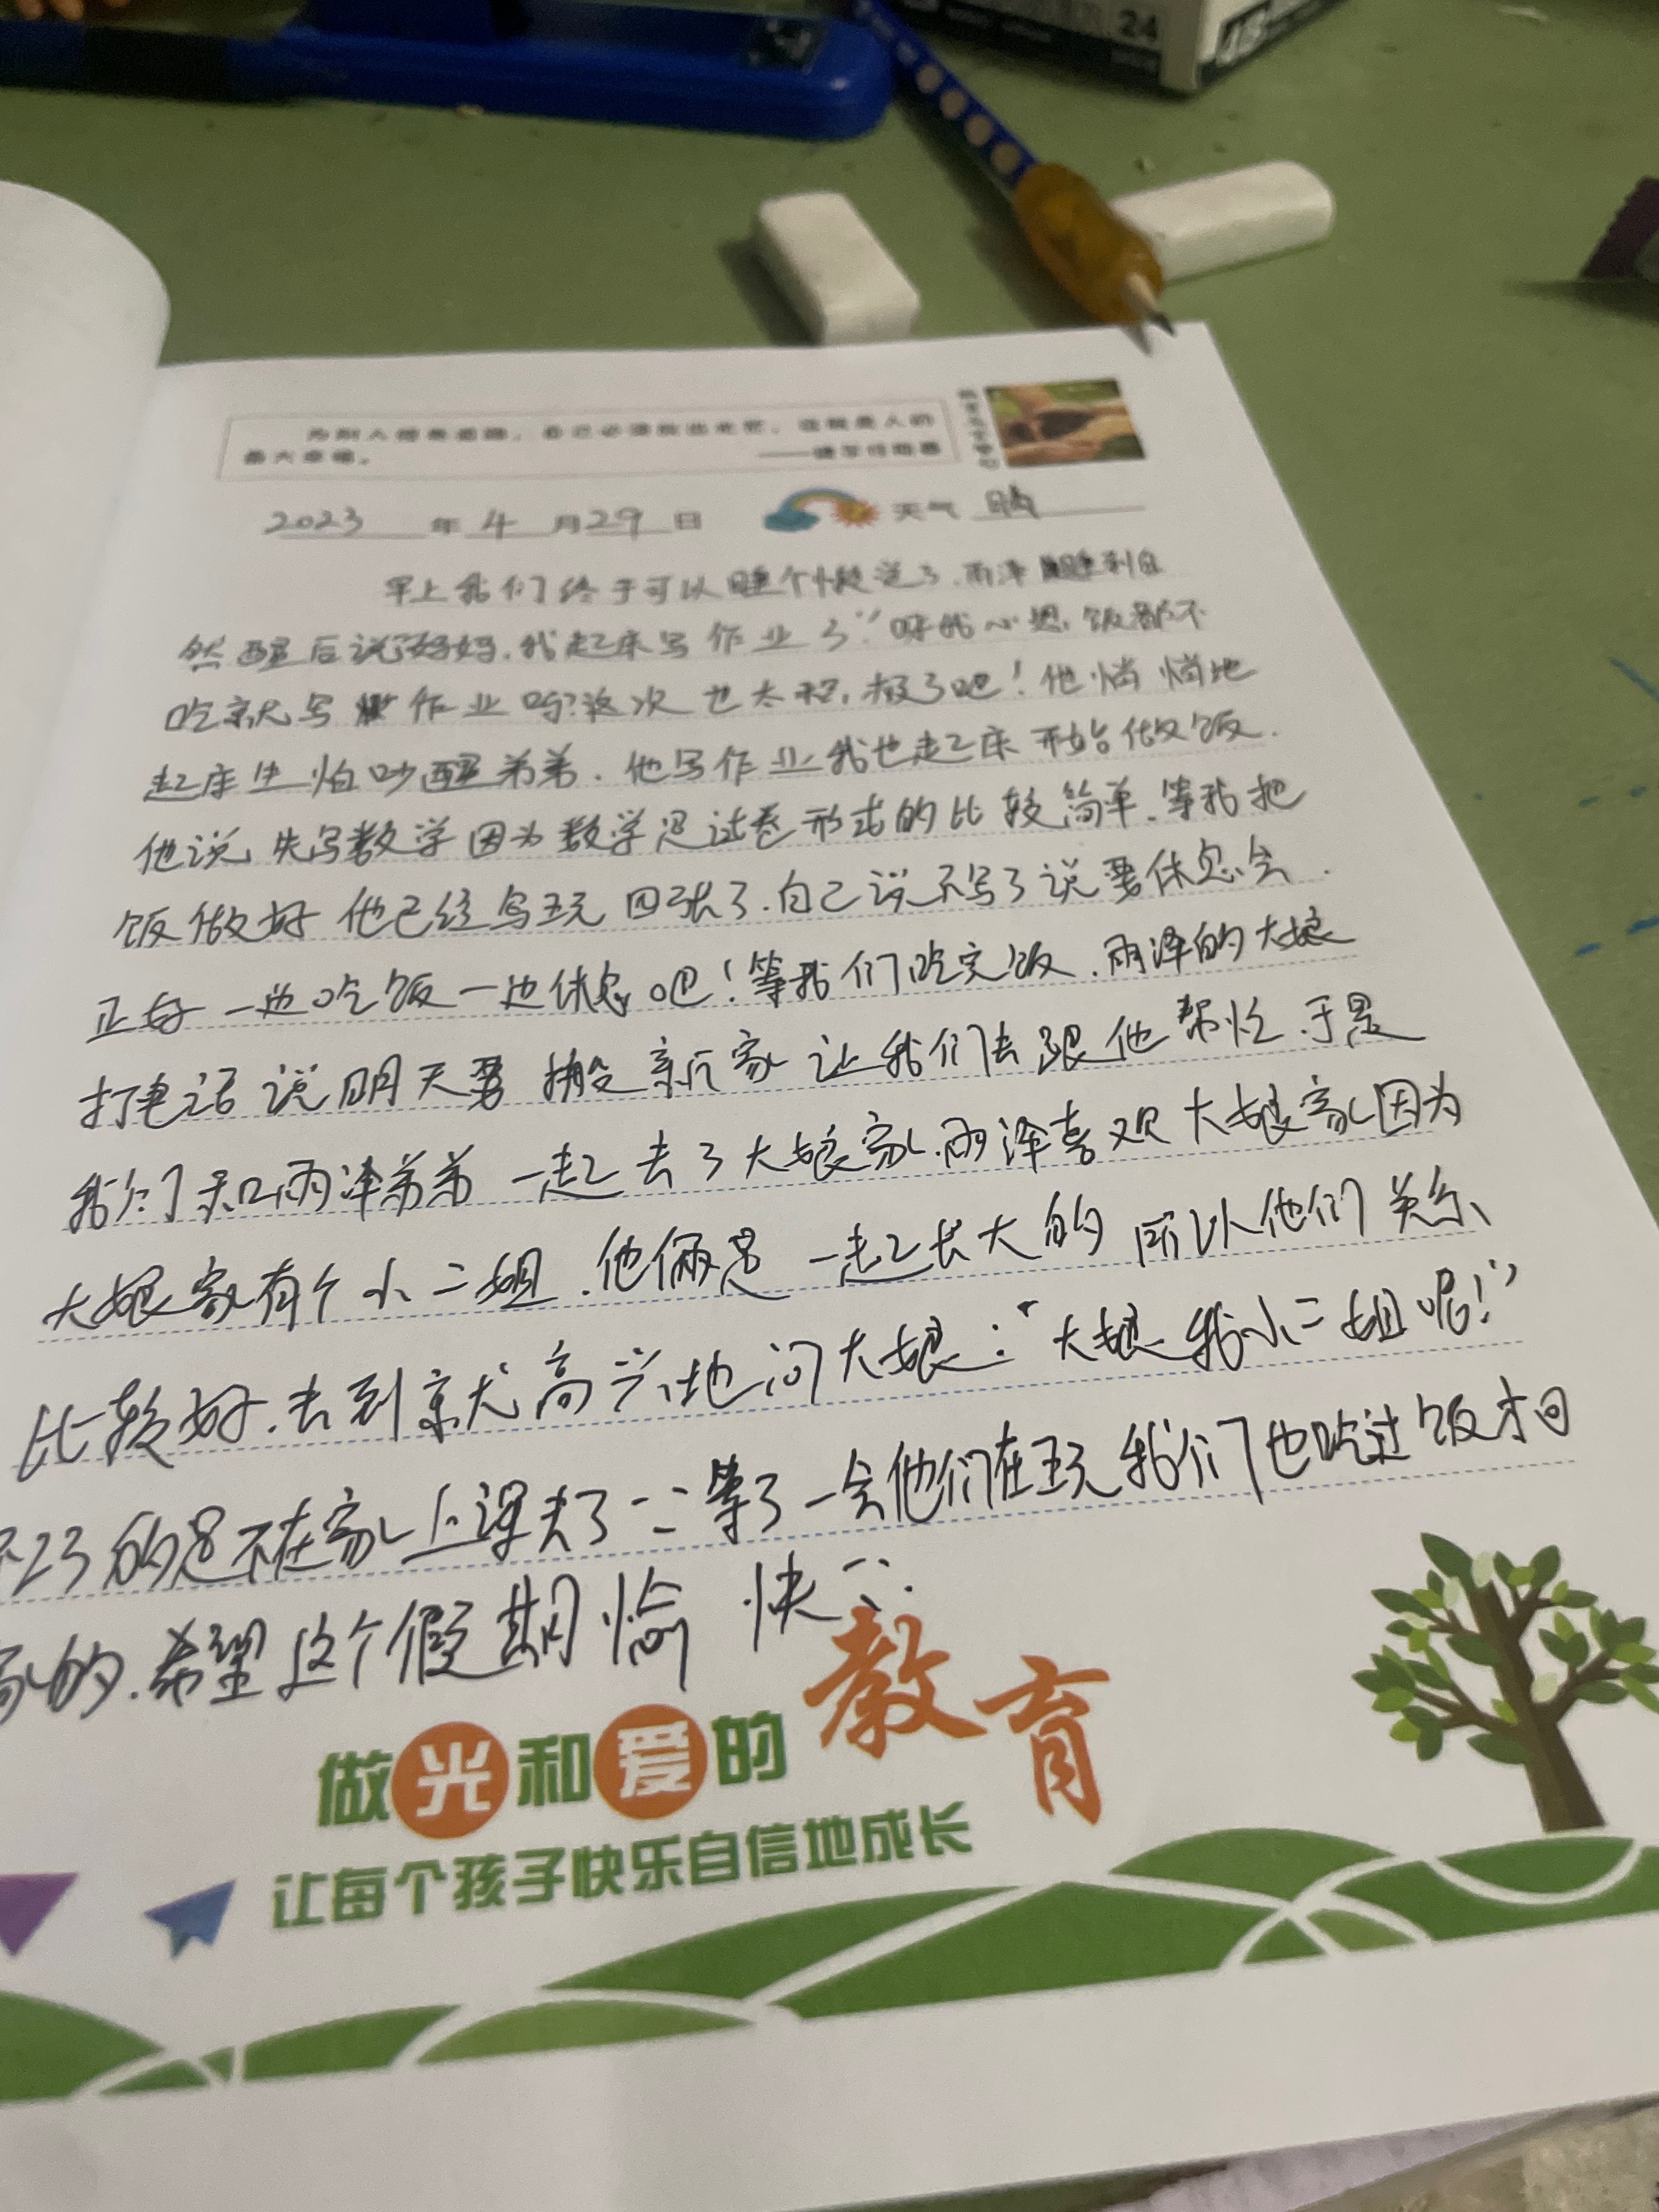 24
为别人照亮道路，自己必须放出光芒，这就是人的
最大幸福。
2023 年 4 月 29 日 天气 晴
早上我们终于可以睡个懒觉了.雨泽睡到自
然醒后说"妈妈.我起床写作业了"呀我心想,饭都不
吃就写作业吗?这次也太积极了吧!他悄悄地
起床生怕吵醒弟弟.他写作业我也起床开始做饭.
他说,先写数学因为数学是试卷形式的比较简单.等我把
饭做好他已经写玩四张了.自己说不写了说要休息会.
正好一边吃饭一边休息吧!等我们吃完饭.雨泽的大娘
打电话说明天要搬新家让我们去跟他帮忙.于是
我们和雨泽弟弟一起去了大娘家.雨泽喜欢大娘家因为
大娘家有个小二姐.他俩是一起长大的所以他们关系
比较好.去到就高兴地问大娘:"大娘我小二姐呢!"
的是不在家上课去了等了一会他们在玩我们也吃过饭才回
家的.希望这个假期愉快
做光和爱的教育
让每个孩子快乐自信地成长